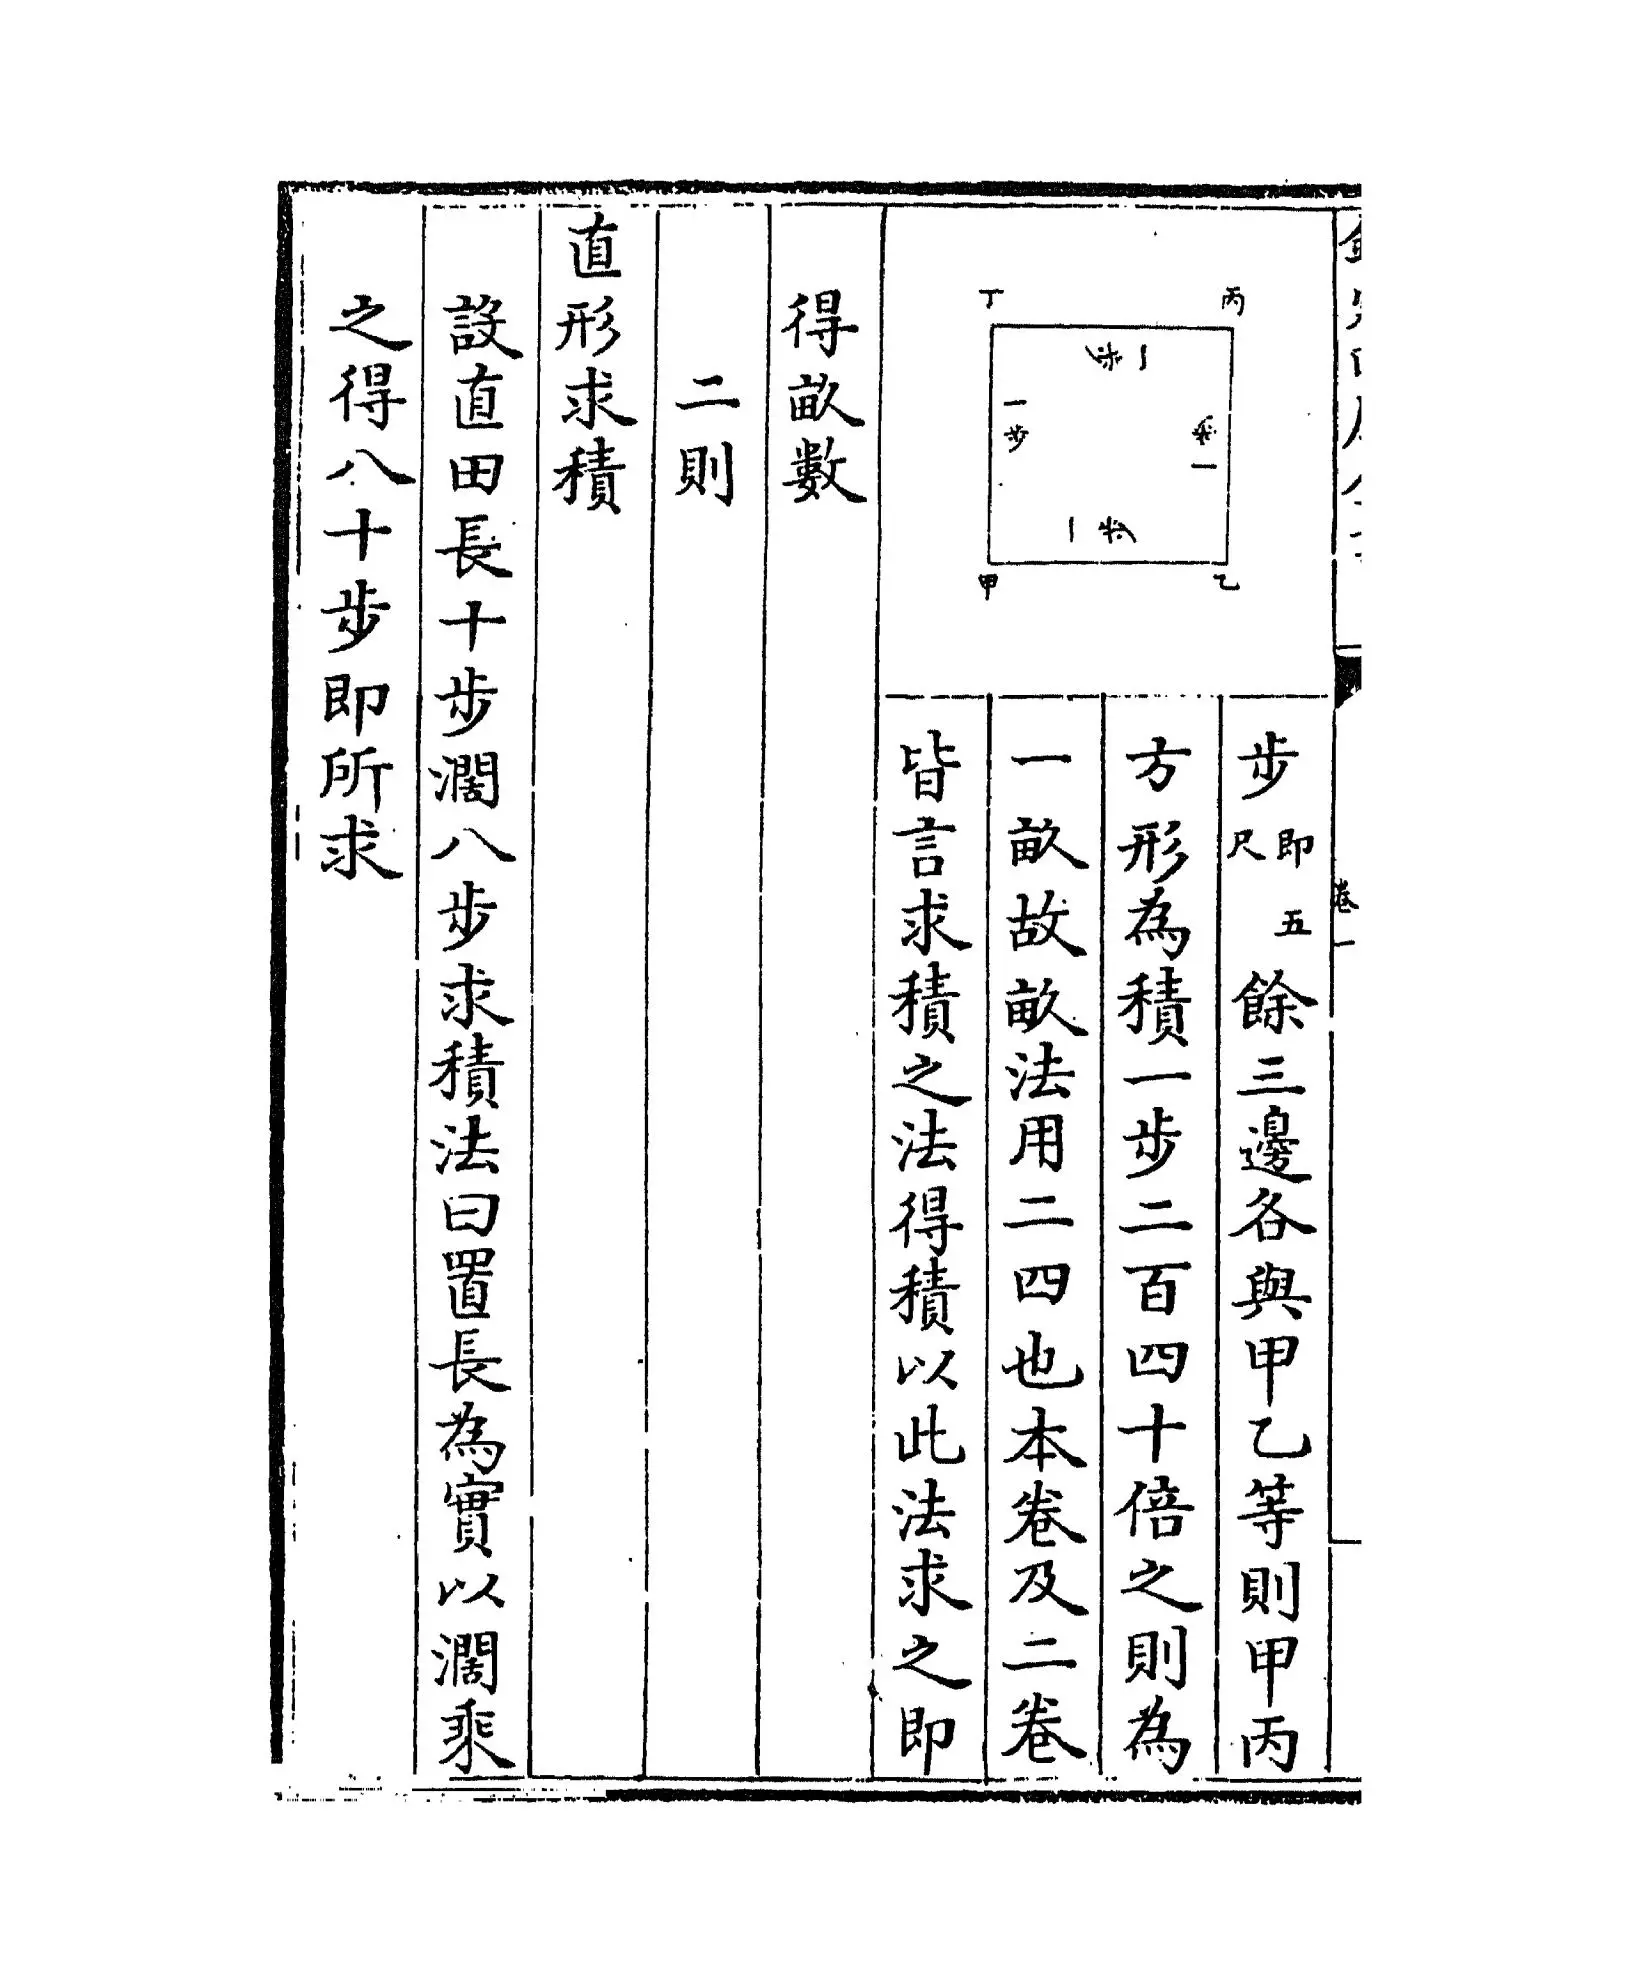 步即五尺餘三邊各與甲乙等則甲丙
方形為積一步二百四十倍之則為
一畝故畝法用二四也本卷及二卷
皆言求積之法得積以此法求之即
丙
丁
乙
甲
一步
一步
一步
一步
得畝數
二則
直形求積
設直田長十步濶八步求積法曰置長為實以濶乘
之得八十步即所求
卷一